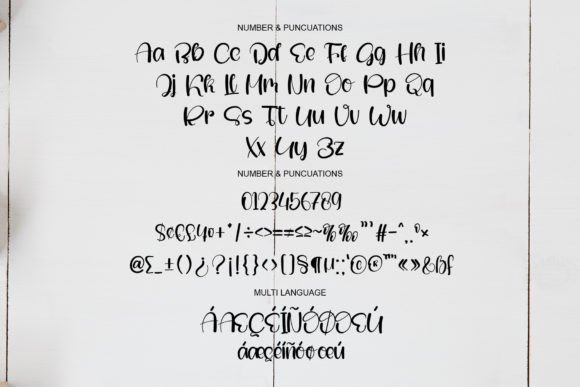 NUMBER & PUNCUATIONS
Aa Bb Cc Dd Ee Ff Gg Hh Ii
Jj Kk Ll Mm Nn Oo Pp Qq
Rr Ss Tt Uu Vv Ww
Xx Yy Zz
NUMBER & PUNCUATIONS
0123456789
MULTI LANGUAGE
ÁÆÇÉÍÑÓØŒÚ
áæçéíñóøœú